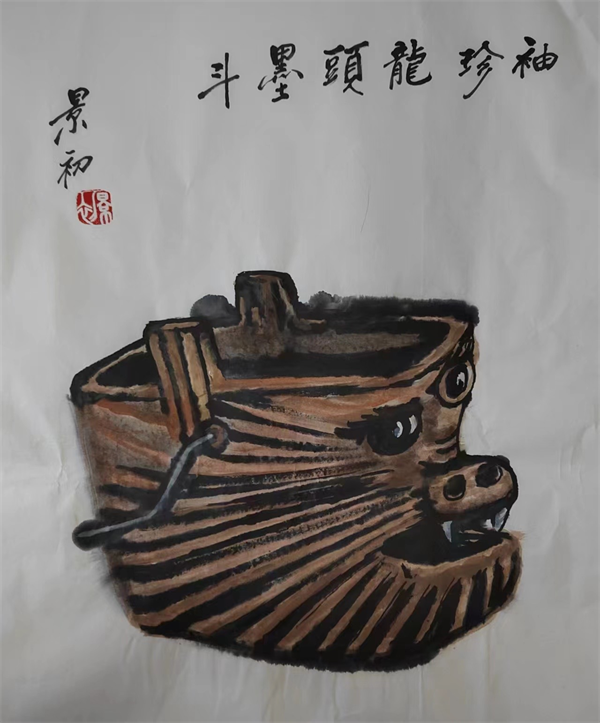 袖珍龍頭墨斗
景初
景初